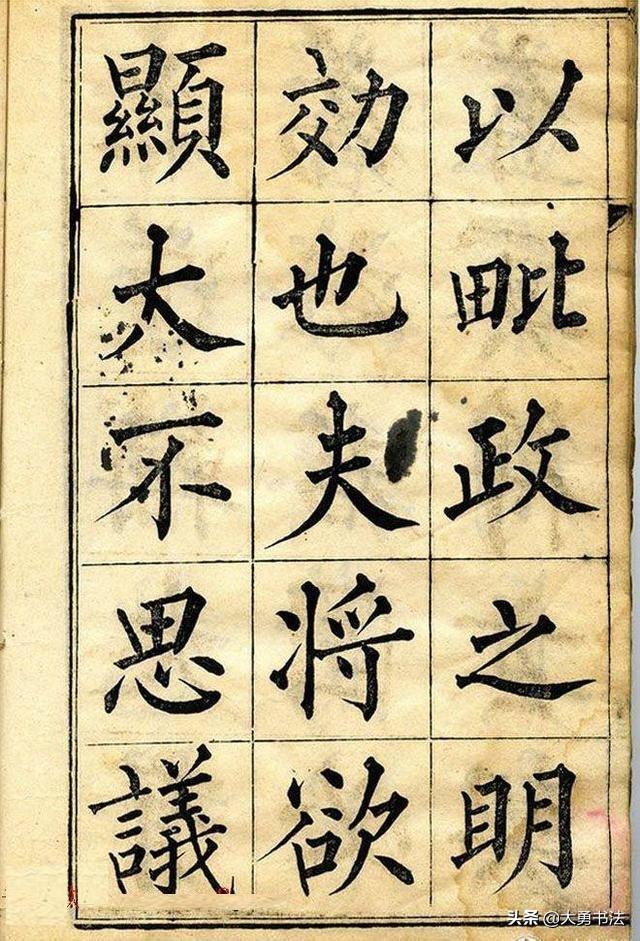 以毗政之明
効也夫将欲
顯大不思議
头条@大勇书法